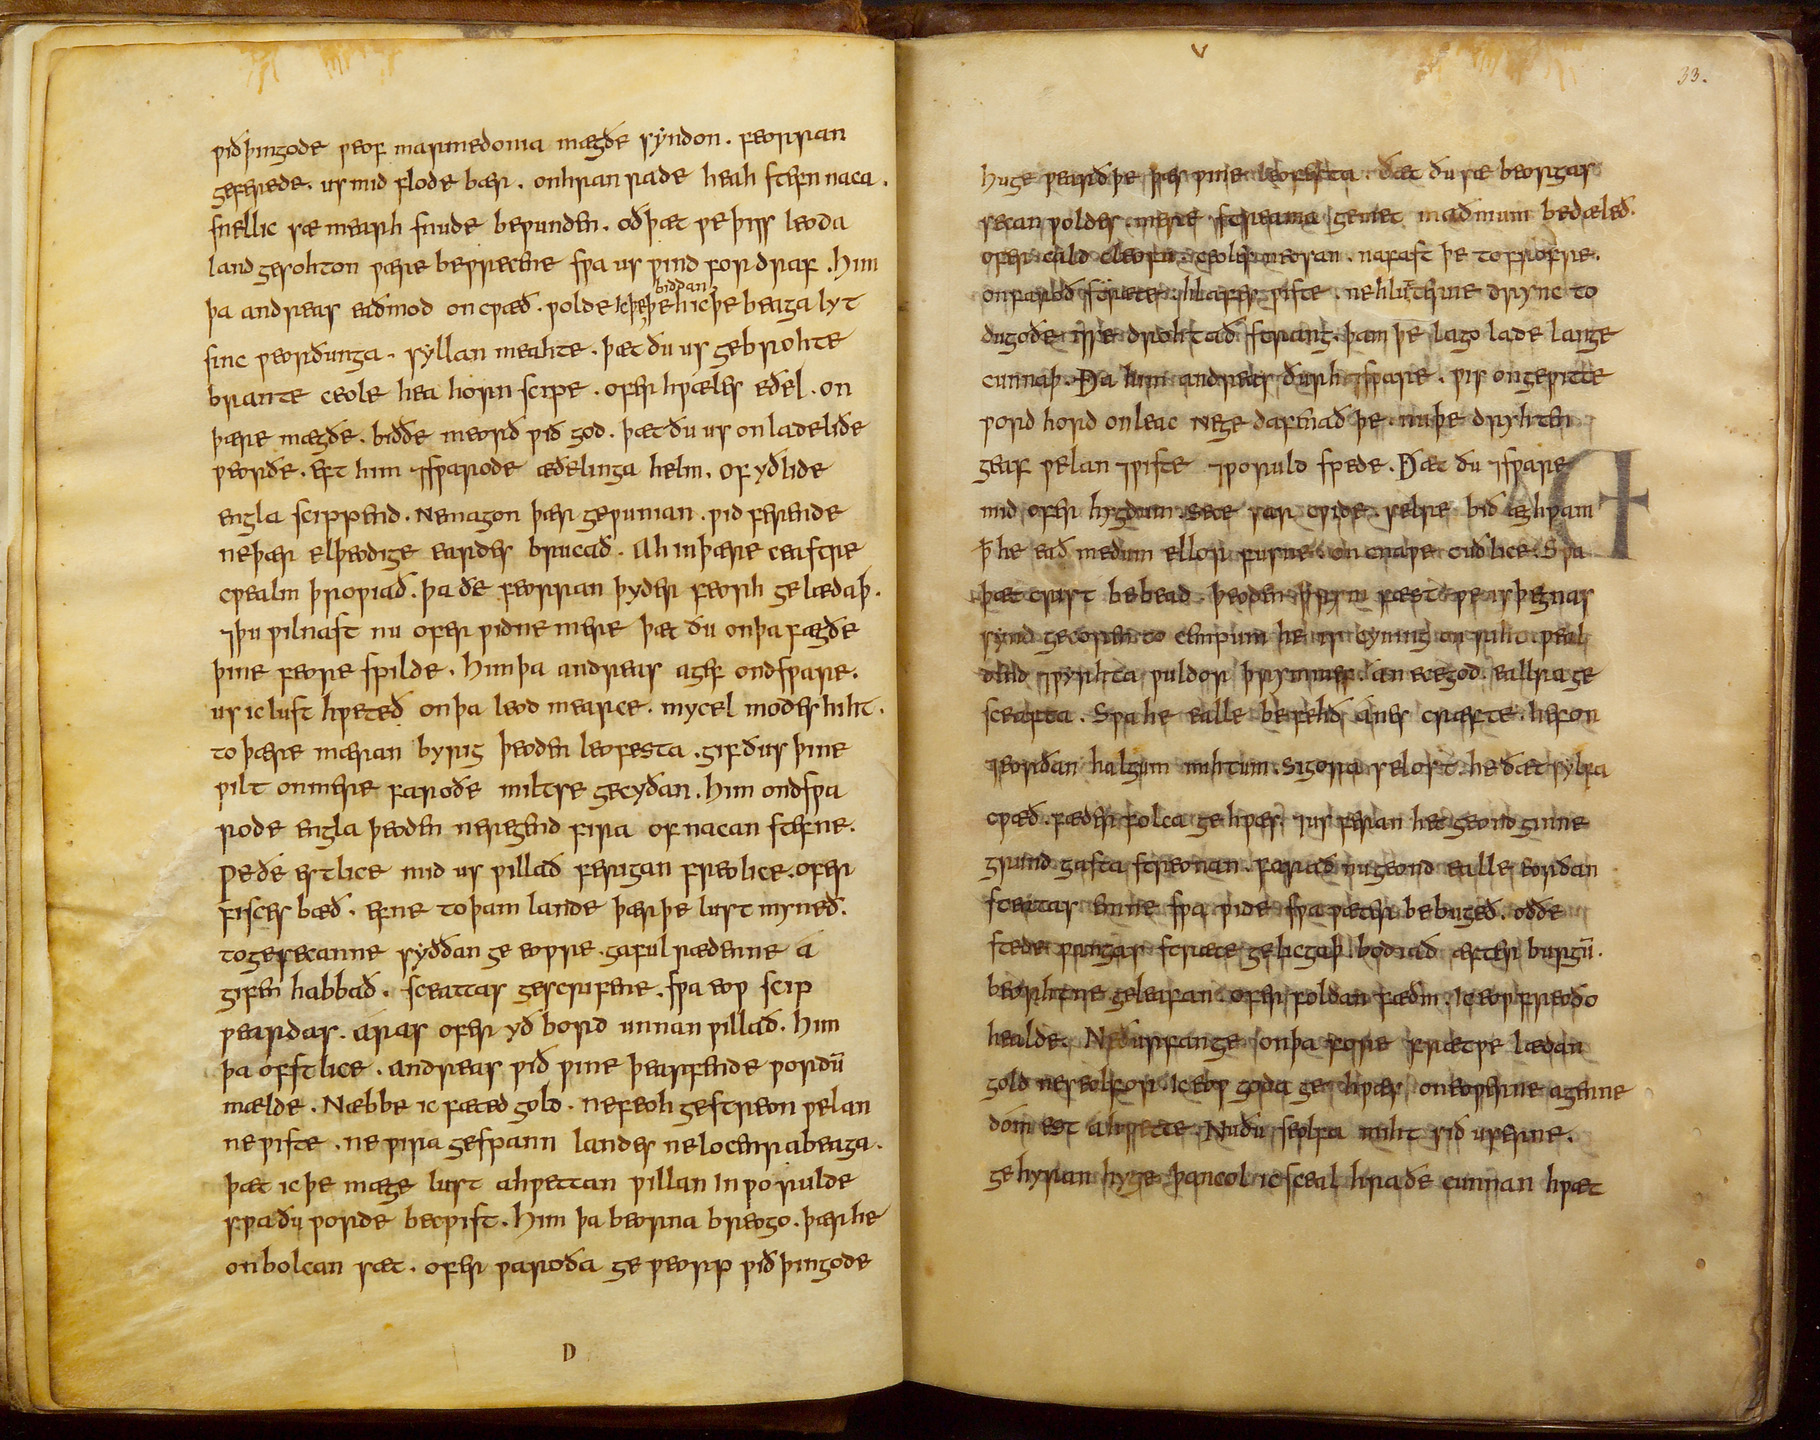 ƿið þingode ƿe of marmedonia mægðe syndon . feorran
geferede . us mid flode bær . on hran rade heah stefn naca .
snellic sæ mearh snude beƿunden . oð þæt ƿe þiss leoda
land gesohton ƿære beƿrecene sƿa us ƿind fordraf . Him
þa andreas eaðmod oncƿæð . ƿolde ic þe biddan þeh ic þe beaga lyt
sinc ƿeorðunga . syllan meahte . þæt ðu us gebrohte
brante ceole hea hornscipe . ofer hƿæles eðel . on
þære mægðe . bidde meorð ƿið god . þæt ðu us on lade liðe
ƿeorðe . Eft him ⁊sƿarode æðelinga helm . of yðlide
engla scippend . Ne magon þær geƿunian . ƿid ferende
ne þær elþeodige eardes brucað . Ah in þære ceastre
cƿealm þroƿiað . þa ðe feorran þyder feorh gelædaþ .
⁊ þu ƿilnast nu ofer ƿidne mere þæt ðu on þa fægðe
þine feore spilde . Him þa andreas agef ondsƿare .
us ic lust hƿeteð on þa leod mearce . mycel modes hiht .
to þære mæran byrig þeoden leofesta . gif ðu us þine
ƿilt on mere faroðe miltse gecyðan . Him ondsƿa
rode engla þeoden neregend fira of nacan stefne .
ƿe ðe estlice mid us ƿillað ferigan freolice . ofer
fisces bæð . efne to þam lande þær þe lust myneð .
to gesecanne syððan ge eoƿre . gaful rædenne á
gifen habbað . sceattas gescrifene . sƿa eoƿ scip
ƿeardas . áras ofer yð bord unnan ƿillað . Him
þa ofstlice . andreas ƿið ƿine þearfende ƿordū
mælde . Næbbe ic fæted gold . ne feoh gestreon ƿelan
ne ƿiste . ne ƿira gesƿann landes ne locenra beaga .
þæt ic þe mæge lust ahƿettan ƿillan in ƿorulde
sƿa ðu ƿorde becƿist . Him þa beorna breogo . þær he
on bolcan sæt . ofer ƿaroða geƿeorp ƿið þingode
D
33.
Huge ƿearð þe þæs ƿine leofesta . ðæt ðu sæ beorgas
secan ƿoldes . mere streama gemet maðmum bedæled .
ofer cald cleofu . ceoles neosan . nafast þe to frofre .
on faroð stræte . hlafes ƿiste . ne hlutterne drync to
dugoðe is se drohtað strang . þam þe lago lade lange
cunnaþ . Ða him andreas ðurh ⁊sƿare . ƿis on geƿitte
ƿord hord onleac Ne gedafenað þe . nu þe dryhten
geaf ƿelan ⁊ ƿiste ⁊ ƿoruld spede . Ðæt ðu ⁊sƿare
mid ofer hygdum . sece sar cƿide . selre bið æghƿam
þ he eað medum ellor fusne . oncnaƿe cuðlice . Sƿa
þæt crist bebead . þeoden þrym fæst ƿe is þegnas
synd gecoren to cempum he is cyning on riht ƿeal
dend ⁊ ƿyrhta ƿuldor þrymmes . án ece god . eallra ge
sceafta . Sƿa he ealle befehð ánes cræfte . hefon
⁊ eorðan halgum mihtum . sigora selost . he ðæt sylfa
cƿæð . fæder folca gehƿæs . ⁊ us feran het geond ginne
grund gasta streonan . farað nu geond ealle eorðan
sceatas emne sƿa ƿide sƿa ƿæter bebugeð . oððe
stede ƿangas stræte gelicgaþ . bodiað æfter burgū .
beorhtne geleafan . ofer foldan fæðm . ic eoƿ freoðo
healde . Ne ðurfan ge on þa fore frætƿe lædan
gold ne seolfor . ic eoƿ goda gehƿæs on eoƿerne agenne
dóm est ahƿette . Nu ðu seolfa miht sið userne .
gehyran hyge þancol ic sceal hraðe cunnan hƿæt